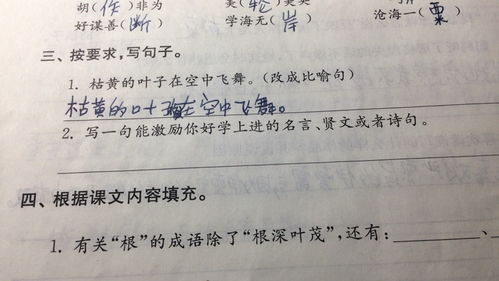 胡(作)非为 美
好谋善(断) 学海无(岸) 沧海一(粟)
三、按要求,写句子。
1. 枯黄的叶子在空中飞舞。(改成比喻句)
枯黄的叶在空中飞舞。
2. 写一句能激励你好学上进的名言、贤文或者诗句。
四、根据课文内容填充。
1. 有关“根”的成语除了“根深叶茂”,还有:________、